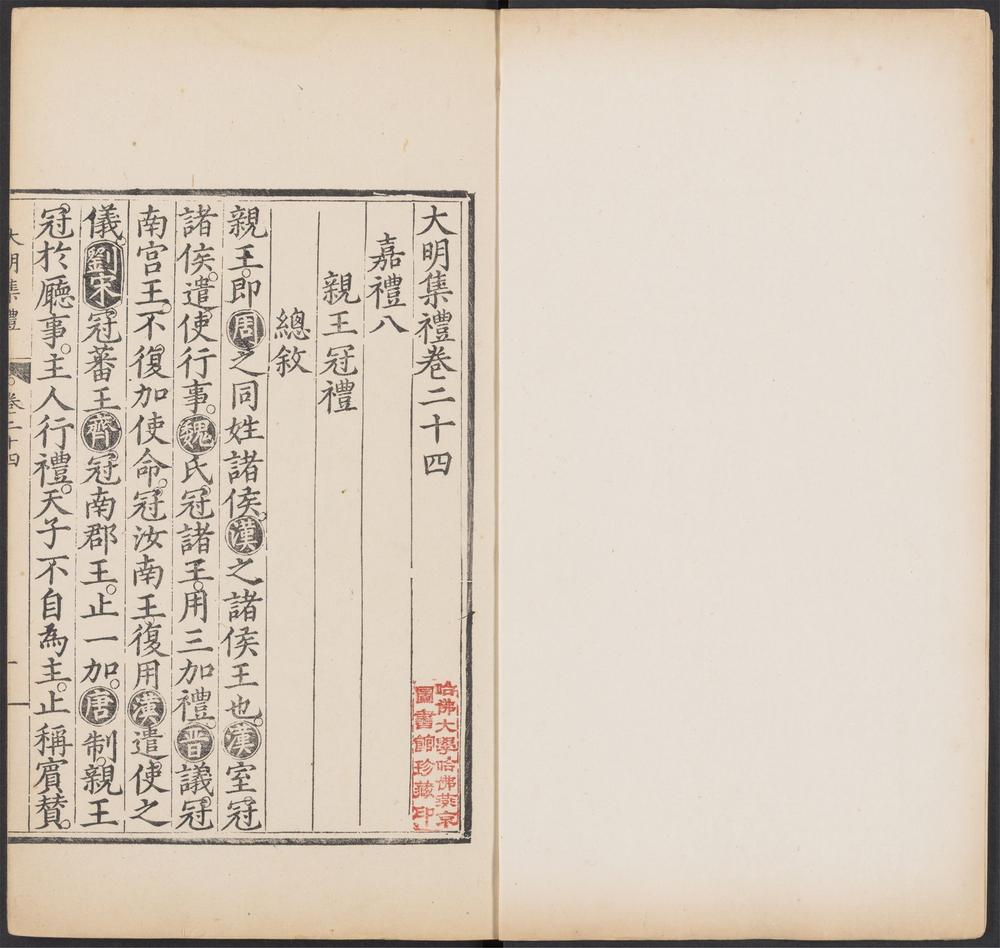 大明集禮卷二十四
嘉禮八
親王冠禮
總敘
親王。即周之同姓諸侯。漢之諸侯王也。漢室冠
諸侯。遣使行事。魏氏冠諸王。用三加禮。晉議冠
南宮王。不復加使命。冠汝南王復用漢遣使之
儀。劉宋冠蕃王。齊冠南郡王。止一加。唐制。親王
冠於廳事。主人行禮。天子不自為主。止稱賓贊。
大明集禮
卷二十四
一
哈佛大學哈佛燕京
圖書館珍藏印